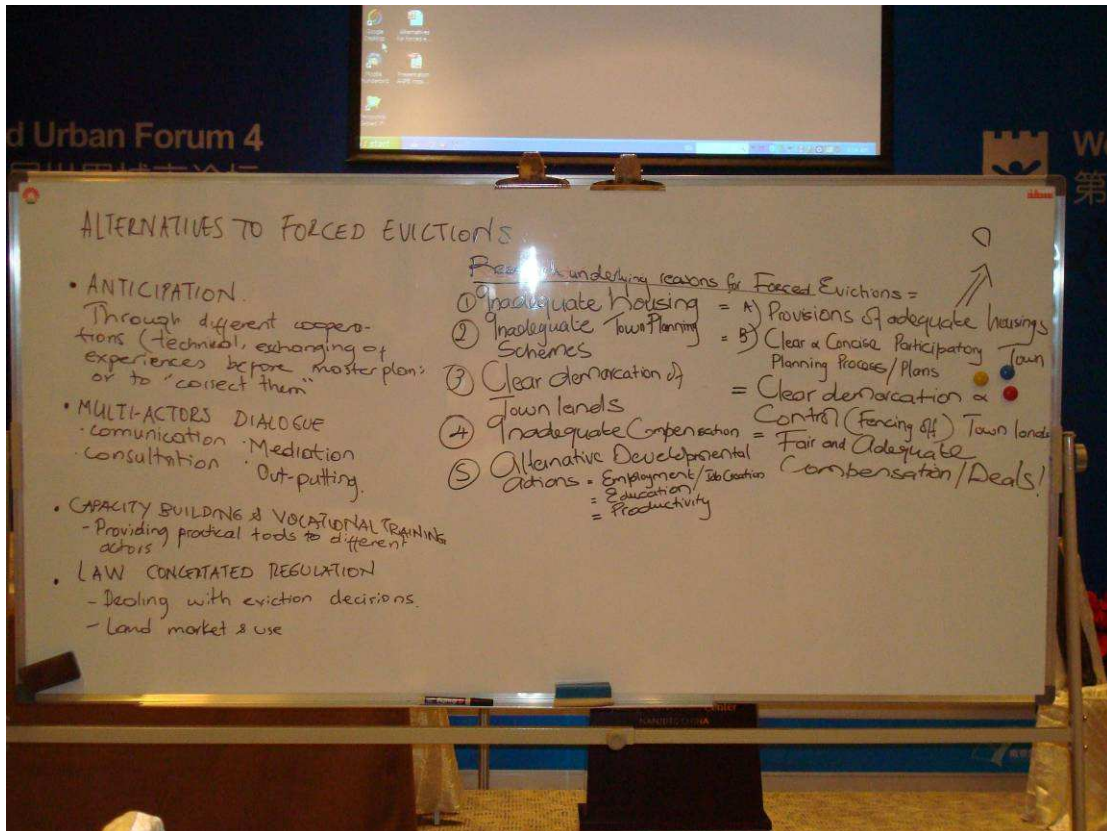 Google
Desktop
Alternatives
Mozilla
Presentation
start
d Urban Forum 4
We
第
ALTERNATIVES TO FORCED EVICTIONS
• ANTICIPATION.
Through different coopera-
tions (technical, exchanging of
experiences before masterplans
or to "correct them"
• MULTI-ACTORS DIALOGUE
· comunication · Mediation
· consultation · Out-putting.
• CAPACITY BUILDING & VOCATIONAL TRAINING
- Providing practical tools to different
actors
• LAW CONCERTATED REGULATION
- Dealing with eviction decisions.
- Land market & use
underlying reasons for Forced Evictions =
① Inadequate housing = A) Provisions of adequate housings
② Inadequate Town Planning = B) Clear & Concise Participatory Town
Schemes Planning Process/Plans
③ Clear demarcation of = Clear demarcation &
Town lands Control (Fencing off) Town lands
④ Inadequate Compensation = Fair and Adequate
Compensation/Deals!
⑤ Alternative Developmental
actions = Employment/Job Creation
= Education
= Productivity
Center
NANJING CHINA